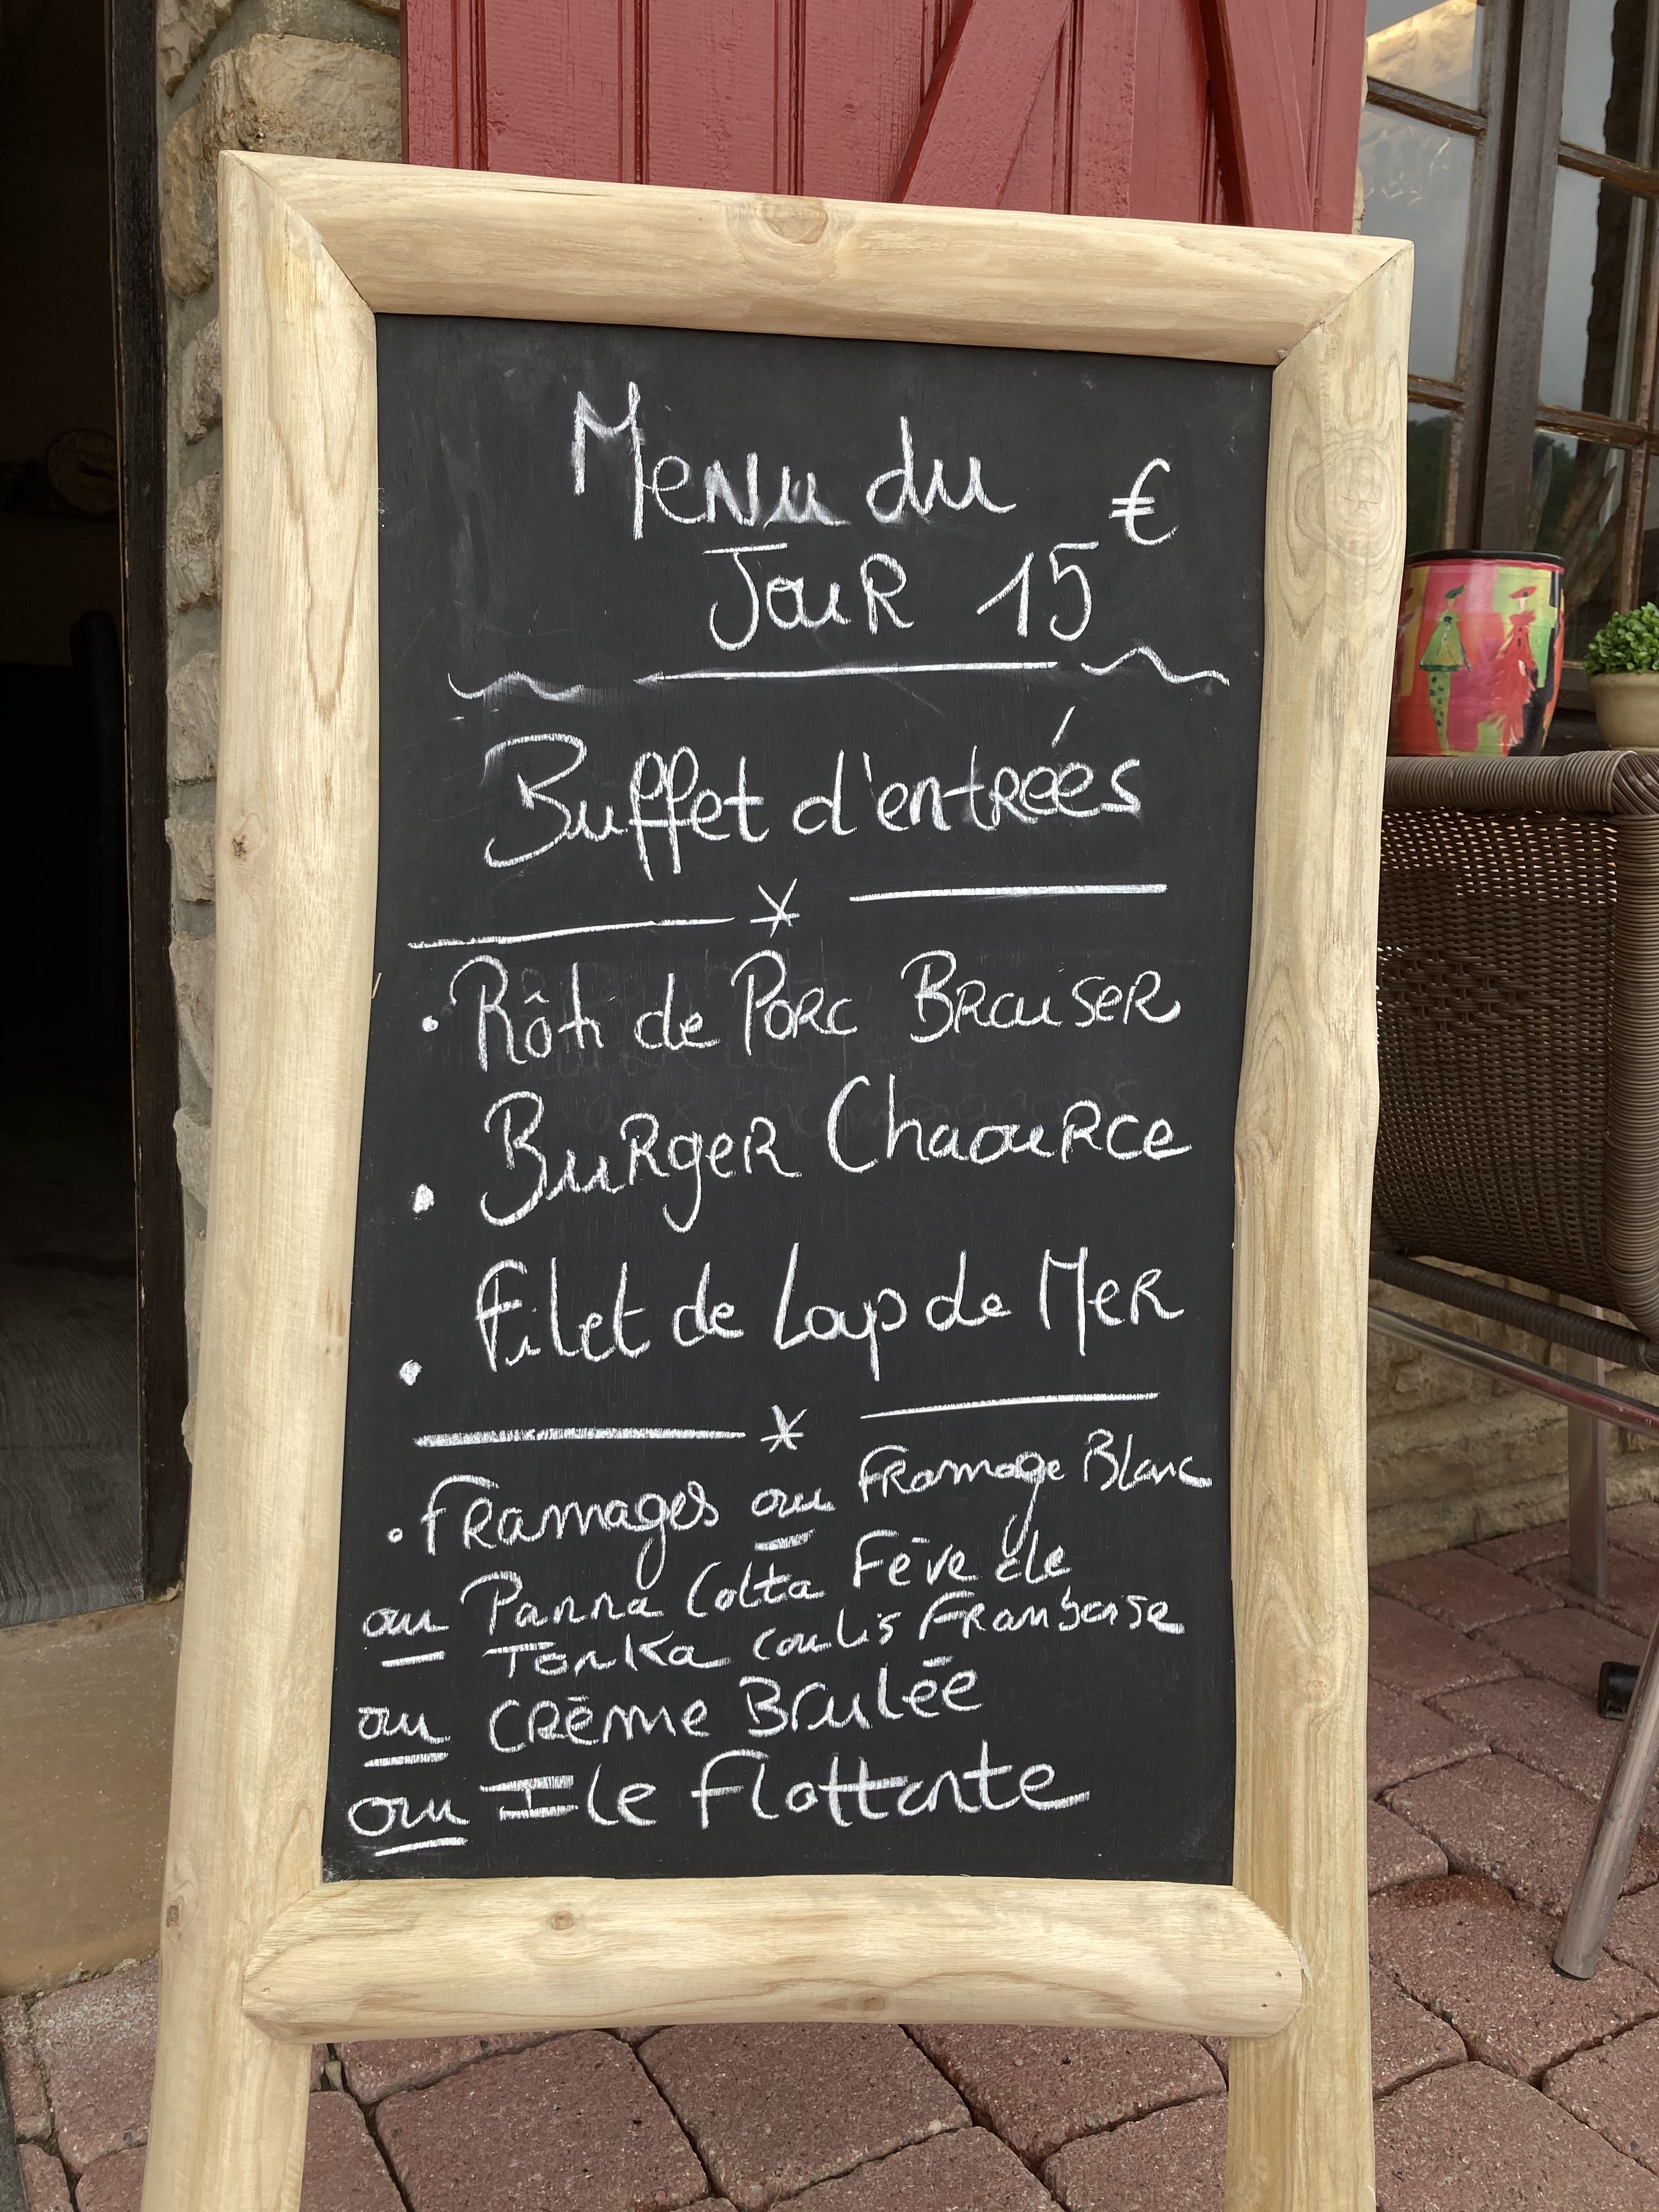 Menu du €
Jour 15
Buffet d'entrées
• Rôti de Porc Brauser
• Burger Chaource
• Filet de Loup de Mer
• Fromages ou Fromage Blanc
ou Panna Cotta Fève de
Tonka coulis Framboise
ou Crème Brulée
ou Ile flottante